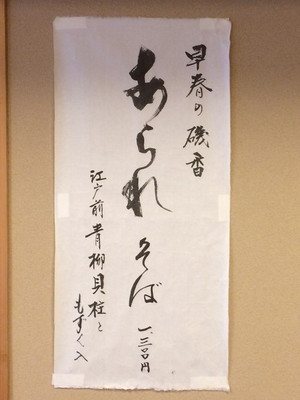 早春の磯香
あられそば
一、三〇〇円
江戸前青柳貝柱と
もずく入